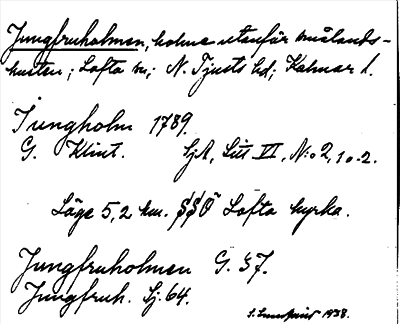 Jungfruholmen, holme utanför smålands-
kusten; Lofta sn; N. Tjusts hd; Kalmar l.
Jungholm 1789.
G. Klint. SjA, Litt VI, N:o 2, 1 o. 2.
Läge 5,2 km. SSÖ Lofta kyrka.
Jungfruholmen G. 57.
Jungfruh. Sj. 64.
1938.